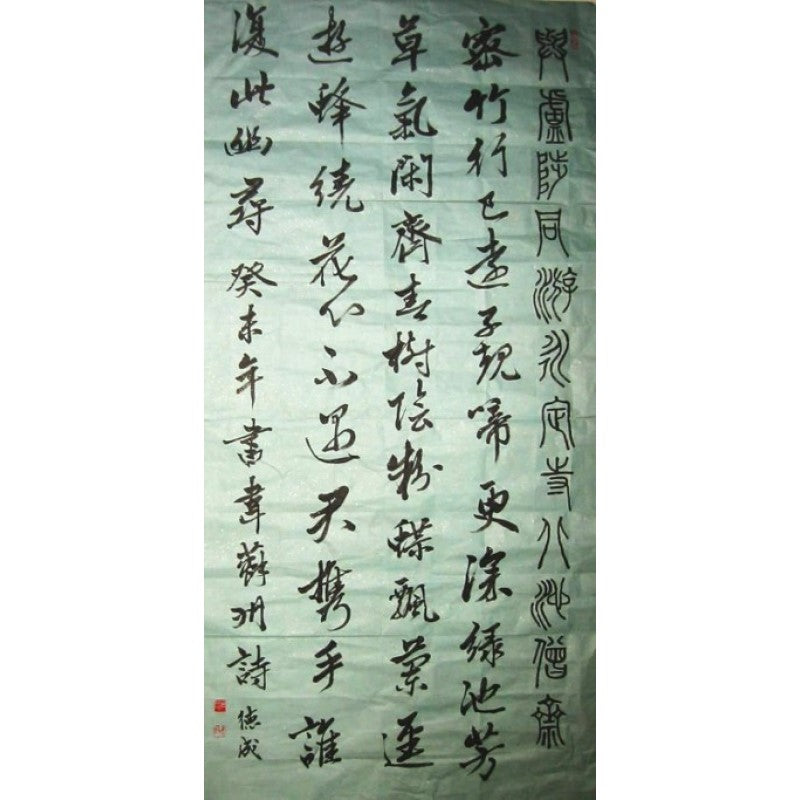 與盧陟同游永定寺北池僧齋
密竹行已遠子規啼更深緑池芳
草氣閑齋春樹陰粉蝶飄蘭逕
遊蜂繞花心不遇君攜手誰
復此幽尋癸未年書韋蘇州詩
德成